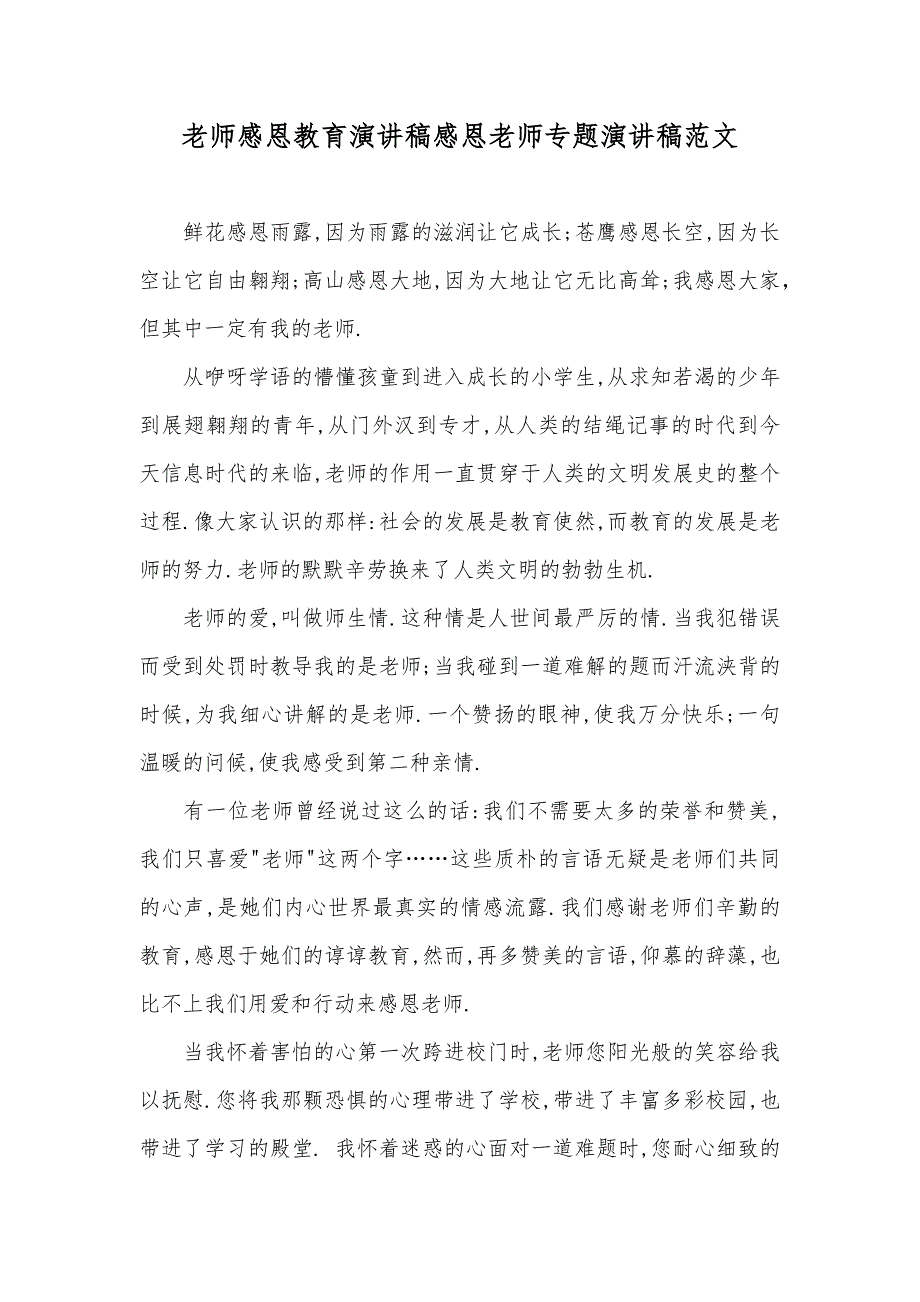 老师感恩教育演讲稿感恩老师专题演讲稿范文
鲜花感恩雨露,因为雨露的滋润让它成长;苍鹰感恩长空,因为长
空让它自由翱翔;高山感恩大地,因为大地让它无比高耸;我感恩大家,
但其中一定有我的老师.
从咿呀学语的懵懂孩童到进入成长的小学生,从求知若渴的少年
到展翅翱翔的青年,从门外汉到专才,从人类的结绳记事的时代到今
天信息时代的来临,老师的作用一直贯穿于人类的文明发展史的整个
过程.像大家认识的那样:社会的发展是教育使然,而教育的发展是老
师的努力.老师的默默辛劳换来了人类文明的勃勃生机.
老师的爱,叫做师生情.这种情是人世间最严厉的情.当我犯错误
而受到处罚时教导我的是老师;当我碰到一道难解的题而汗流浃背的
时候,为我细心讲解的是老师.一个赞扬的眼神,使我万分快乐;一句
温暖的问候,使我感受到第二种亲情.
有一位老师曾经说过这么的话:我们不需要太多的荣誉和赞美,
我们只喜爱"老师"这两个字……这些质朴的言语无疑是老师们共同
的心声,是她们内心世界最真实的情感流露.我们感谢老师们辛勤的
教育,感恩于她们的谆谆教育,然而,再多赞美的言语,仰慕的辞藻,也
比不上我们用爱和行动来感恩老师.
当我怀着害怕的心第一次跨进校门时,老师您阳光般的笑容给我
以抚慰.您将我那颗恐惧的心理带进了学校,带进了丰富多彩校园,也
带进了学习的殿堂. 我怀着迷惑的心面对一道难题时,您耐心细致的